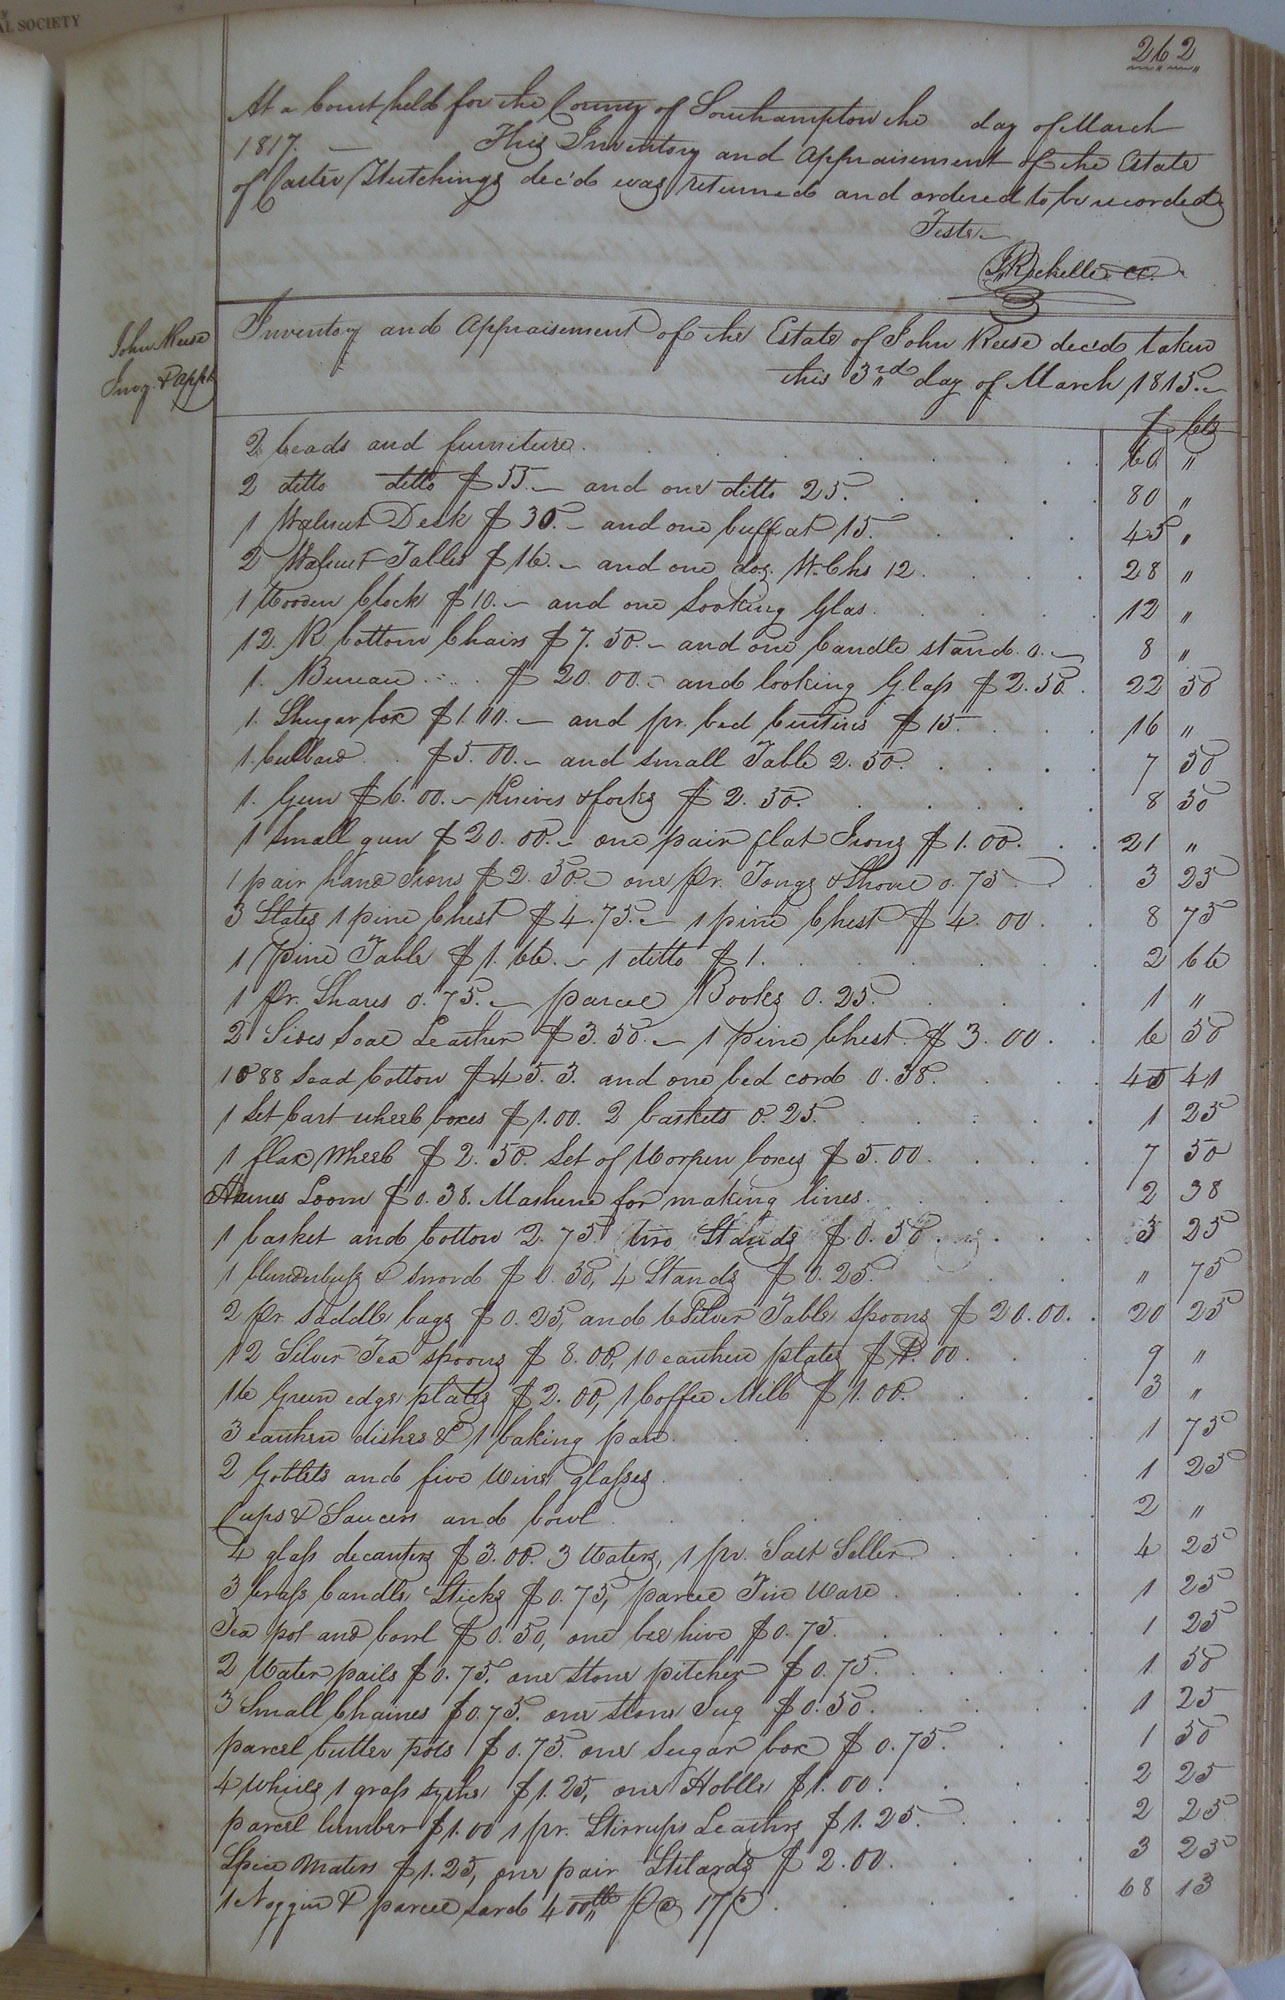 AL SOCIETY
262
At a Court held for the County of Southampton the day of March
1817. — This Inventory and Appraisement of the Estate
of Carter Hutchings dec'd was returned and ordered to be recorded
Teste.—
J Rochelle cc.
John Reese
Invy. & Appt
Inventory and Appraisement of the Estate of John Reese dec'd taken
this 3rd day of March 1815.—
$ Cts
2 beads and furniture. 60 "
2 ditto ditto $55.— and one ditto 25. 80 "
1 Walnut Desk $30.— and one buffat 15. 45 "
2 Walnut Tables $16.— and one doz. W. Chs 12. 28 "
1 Wooden Clock $10.— and one Looking Glas. 12 "
12 R bottom Chairs $7.50.— and one Candle stand. 0.— 8 "
1. Bureau $20.00.— and looking Glass $2.50. 22 50
1. Shugar box $1.00.— and pr. bed Curtins $15. 16 "
1. Cubbard $5.00.— and small Table 2.50. 7 50
1. Gun $6.00.— Knives & forks $2.50. 8 50
1 Small gun $20.00.— one pair flat Irons $1.00. 21 "
1 pair hand Irons $2.50.— one pr. Tongs & Shovel 0.75 3 25
3 Slates 1 pine Chest $4.75.— 1 pine Chest $4.00. 8 75
1 Pine Table $1.66.— 1 ditto $1. 2 66
1 pr. Shares 0.75.— parcel Books 0.25. 1 "
2 Sides Soal Leather $3.50.— 1 pine Chest. $3.00. 6 50
1088 Sead Cotton $45.3. and one bed cord 0.38. 45 41
1 Set Cart wheel boxes $1.00. 2 baskets 0.25. 1 25
1 flax Wheel $2.50. Set of Worpen boxes $5.00. 7 50
Harnes Loom $0.38. Mashene for making lines. 2 38
1 basket and Cotton 2.75 two Stands $0.50. 3 25
1 blunderbuss & sword $0.50, 4 Stands $0.25. " 75
2 pr. saddle bags $0.25, and 6 Silver Table spoons $20.00. 20 25
12 Silver Tea spoons $8.00, 10 earthen plates $1.00. 9 "
16 Green edge plates $2.00, 1 Coffee Mill $1.00. 3 "
3 earthen dishes & 1 baking pan. 1 75
2 Goblets and five wine glasses. 1 25
Cups & Saucers and bowl 2 "
4 glass decanters $3.00. 3 Waters, 1 pr. Salt Seller 4 25
3 brass Candle Sticks $0.75, parcel Tin ware 1 25
Tea pot and bowl $0.50, one bee hive $0.75. 1 25
2 Water pails $0.75, one stone pitcher $0.75. 1 50
3 Small Chaines $0.75. one stone Jug $0.50. 1 25
parcel butter pots $0.75. one sugar box $0.75. 1 50
4 Whiels 1 grass sythe $1.25, one Hoblle $1.00. 2 25
parcel lumber $1.00 1 pr. Stirrups Leathers $1.25. 2 25
Spice Maters $1.25, one pair Stilards $2.00. 3 25
1 Noggin & parcel Lard 400 lb @ 17 68 13